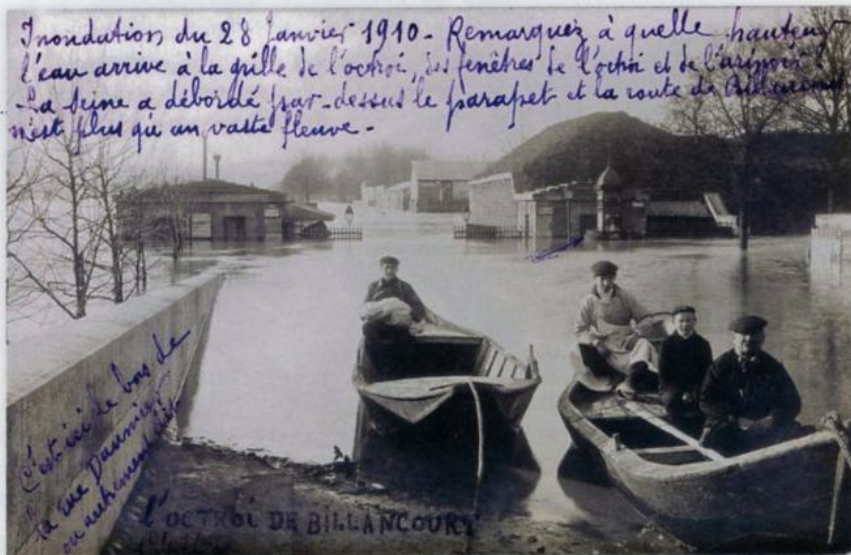 Inondation du 28 Janvier 1910 - Remarquez à quelle hauteur
l'eau arrive à la grille de l'octroi, des fenêtres de l'octroi et de
-La Seine a débordé par-dessus le parapet et la route de Billancourt
n'est plus qu'un vaste fleuve -
C'est ici le bas de
la rue Daumier
ou autrement dit
L'OCTROI DE BILLANCOURT